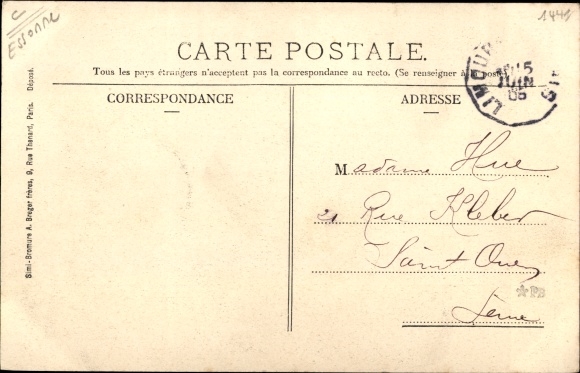 C
Essonne
1441
CARTE POSTALE.
Tous les pays étrangers n'acceptent pas la correspondance au recto. (Se renseigner à la poste)
CORRESPONDANCE
ADRESSE
15
JUIN
05
Simi-Bromure A. Breger frères, 9, Rue Thénard, Paris. Déposé.
Madame Hue
21 Rue Kleber
Saint Ouen
Seine